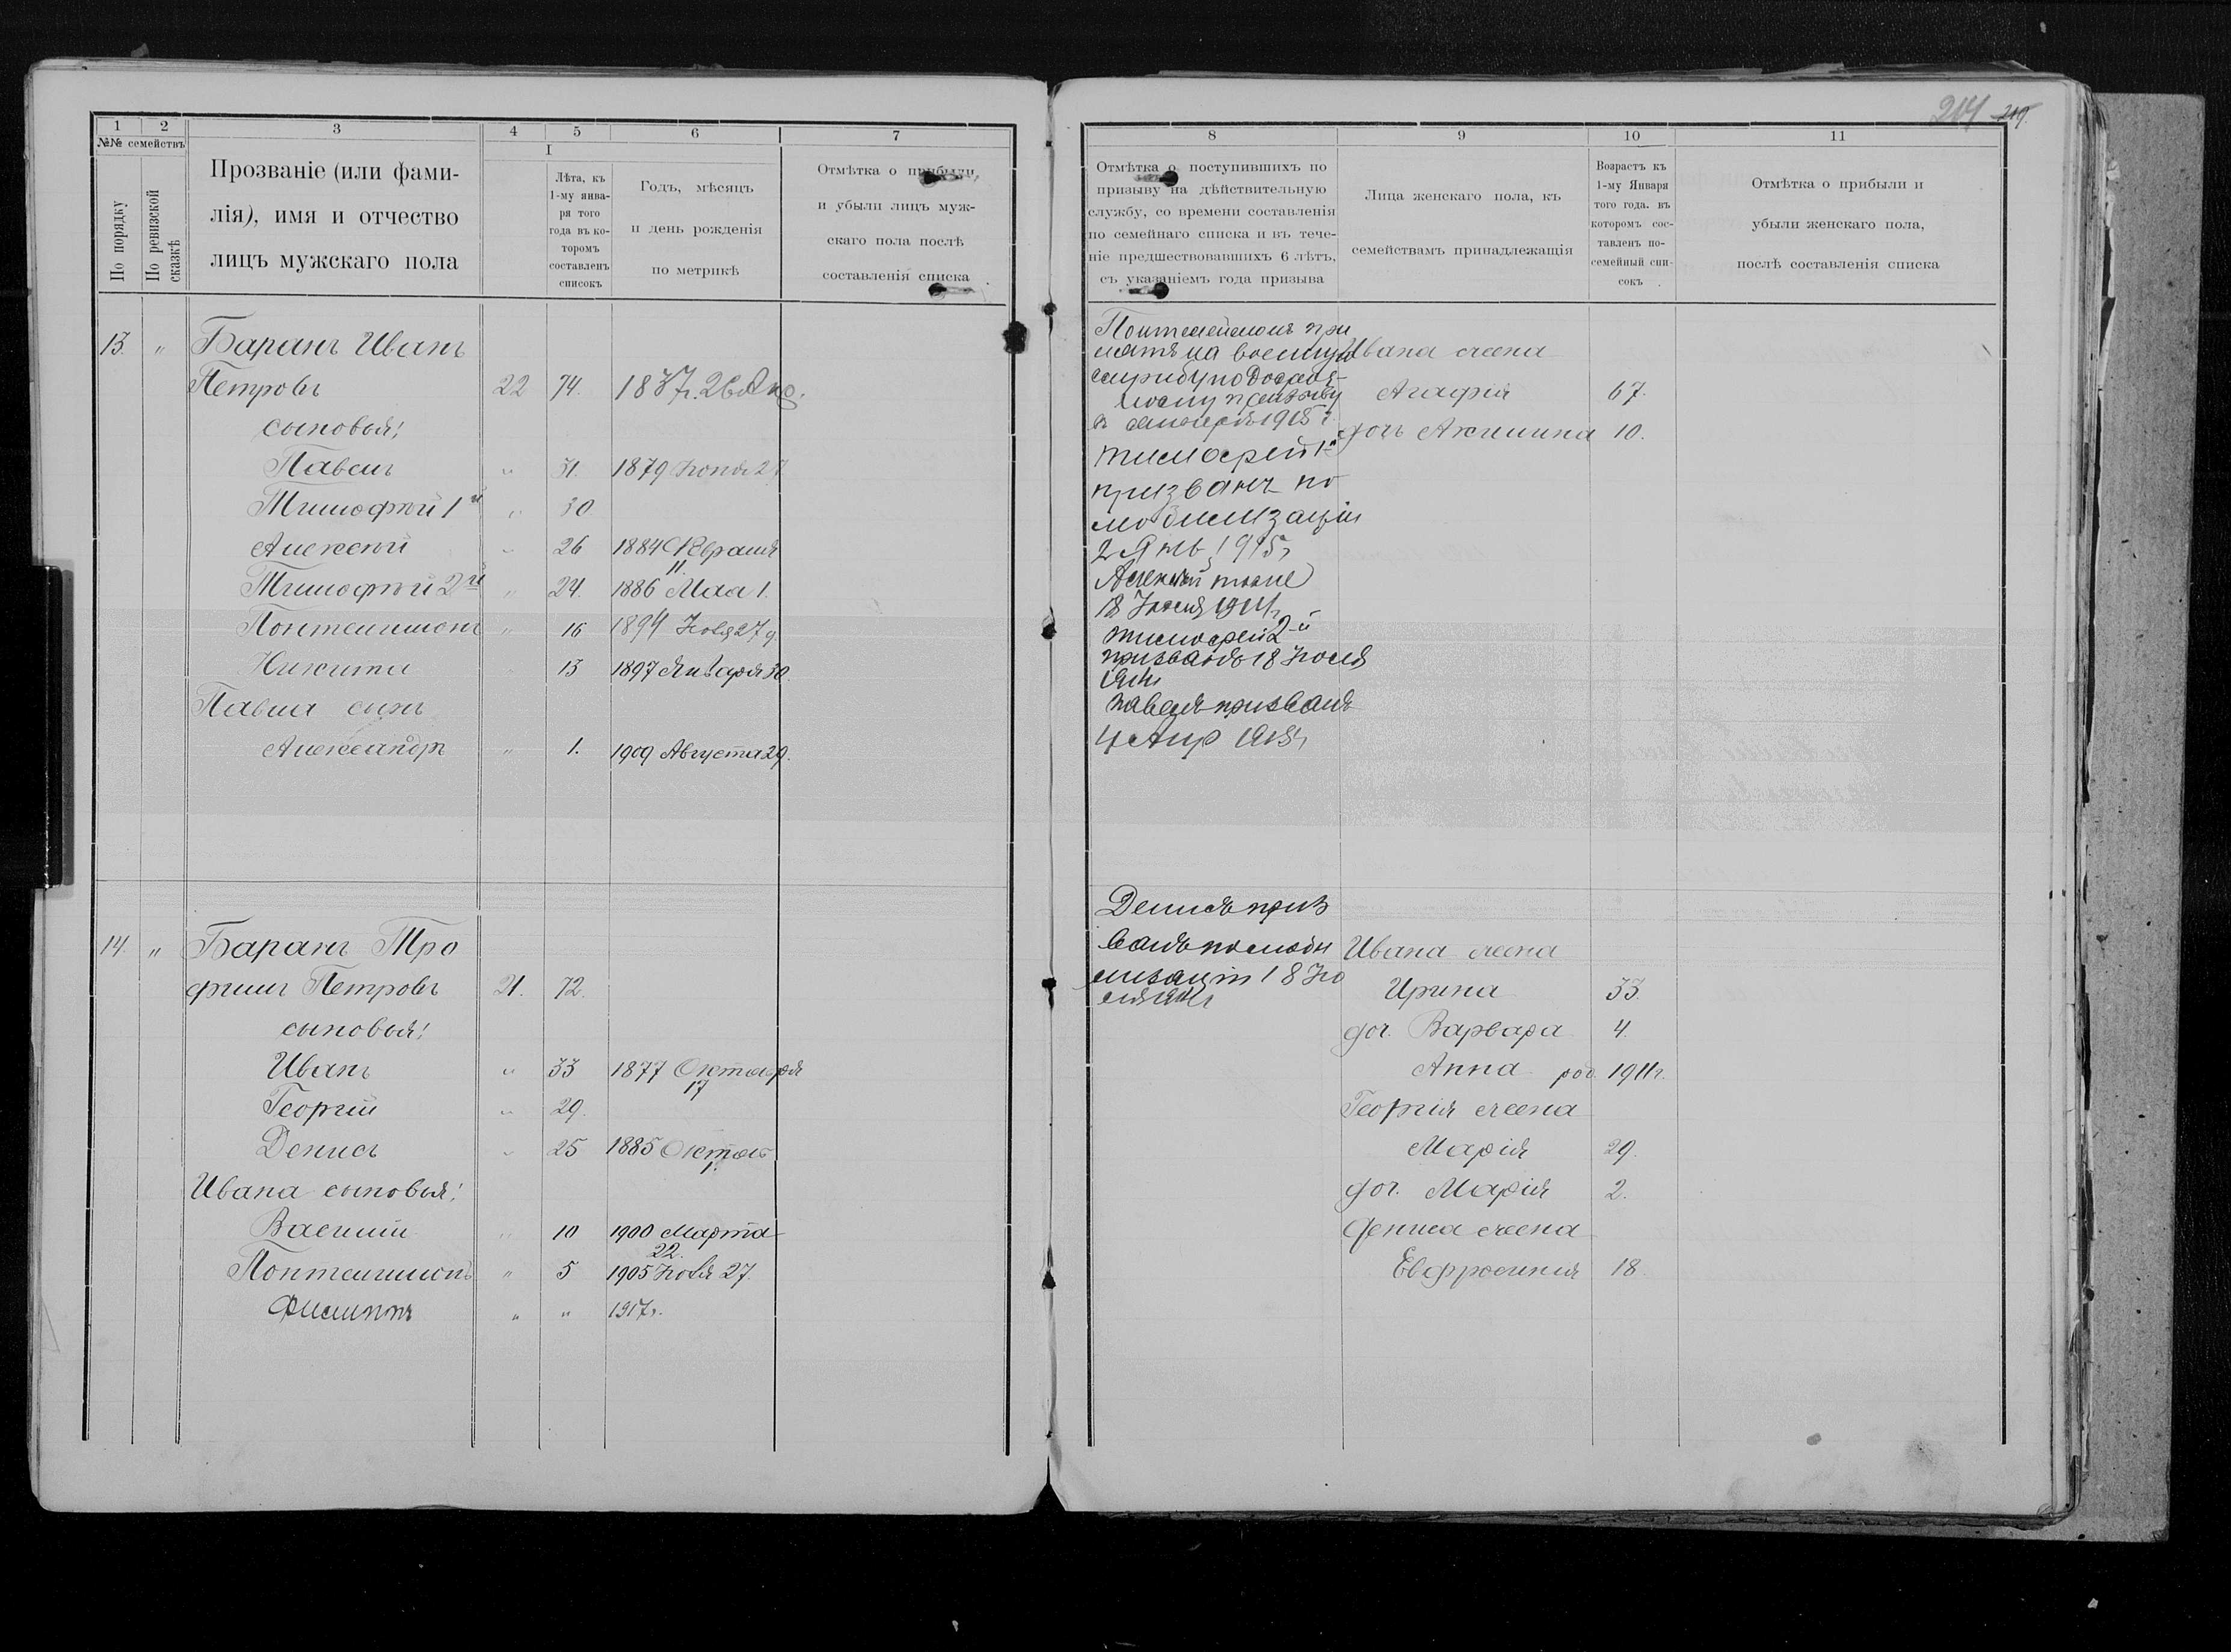 214 219
1 2 3 4 5 6 7
№№ семействъ
По порядку
По ревизской сказкѣ
Прозваніе (или фами-
лія), имя и отчество
лицъ мужскаго пола
I
Лѣта, къ
1-му янва-
ря того
года въ ко-
торомъ
составленъ
списокъ
Годъ, мѣсяцъ
и день рожденія
по метрикѣ
Отмѣтка о прибыли,
и убыли лицъ муж-
скаго пола послѣ
составленія списка
13. " Баранъ Иванъ
Петровъ 22 74. 1837г. 26
сыновья:
Павелъ " 31. 1879 Іюня 27
Тимофѣй 1й " 30
Алексѣй " 26 1884 Февраля
11.
Тимофѣй 2й " 24. 1886 Мая 1.
Понтелимонъ " 16 1894 Іюля 27 д.
Никита 13 1897 Января 30.
Павла сынъ
Александръ " 1. 1909 Августа 29.
14. " Баранъ Тро
фимъ Петровъ 21. 72.
сыновья:
Иванъ " 33 1877 Октября
17
Георгій " 29.
Денисъ " 25 1885 Октяб
1.
Ивана сыновья:
Василій " 10 1900 Марта
22.
Понтелимонъ " 5 1905 Іюля 27.
Филиппъ " " 1917г.
8 9 10 11
Отмѣтка о поступившихъ по
призыву на дѣйствительную
службу, со времени составленія
по семейнаго списка и въ тече-
ніе предшествовавшихъ 6 лѣтъ,
съ указаніемъ года призыва
Лица женскаго пола, къ
семействамъ принадлежащія
Возрастъ къ
1-му Января
того года. въ
которомъ сос-
тавленъ по-
семейный спи-
сокъ
Отмѣтка о прибыли и
убыли женскаго пола,
послѣ составленія списка
Понтелеймонъ при
нятъ на военную
службу по досроч-
ному призыву
в 1915 г.
Тимофей 1-й
призванъ по
мобилизаціи
2 Янв 1915г
Алексѣй тоже
18 Іюля 1914г
Тимофей 2-й
призванъ 18 Іюля
1914г
Павелъ призванъ
4 Апр 1915г
Ивана жена
Агафія 67.
дочь Акилина 10.
Денисъ приз
ванъ по моби
лизаціи 18 Ію
ля 1914г
Ивана жена
Ирина 33.
доч. Варвара 4.
Анна род. 1911г.
Георгія жена
Марія 29.
доч. Марія 2.
Дениса жена
Евфросинія 18.